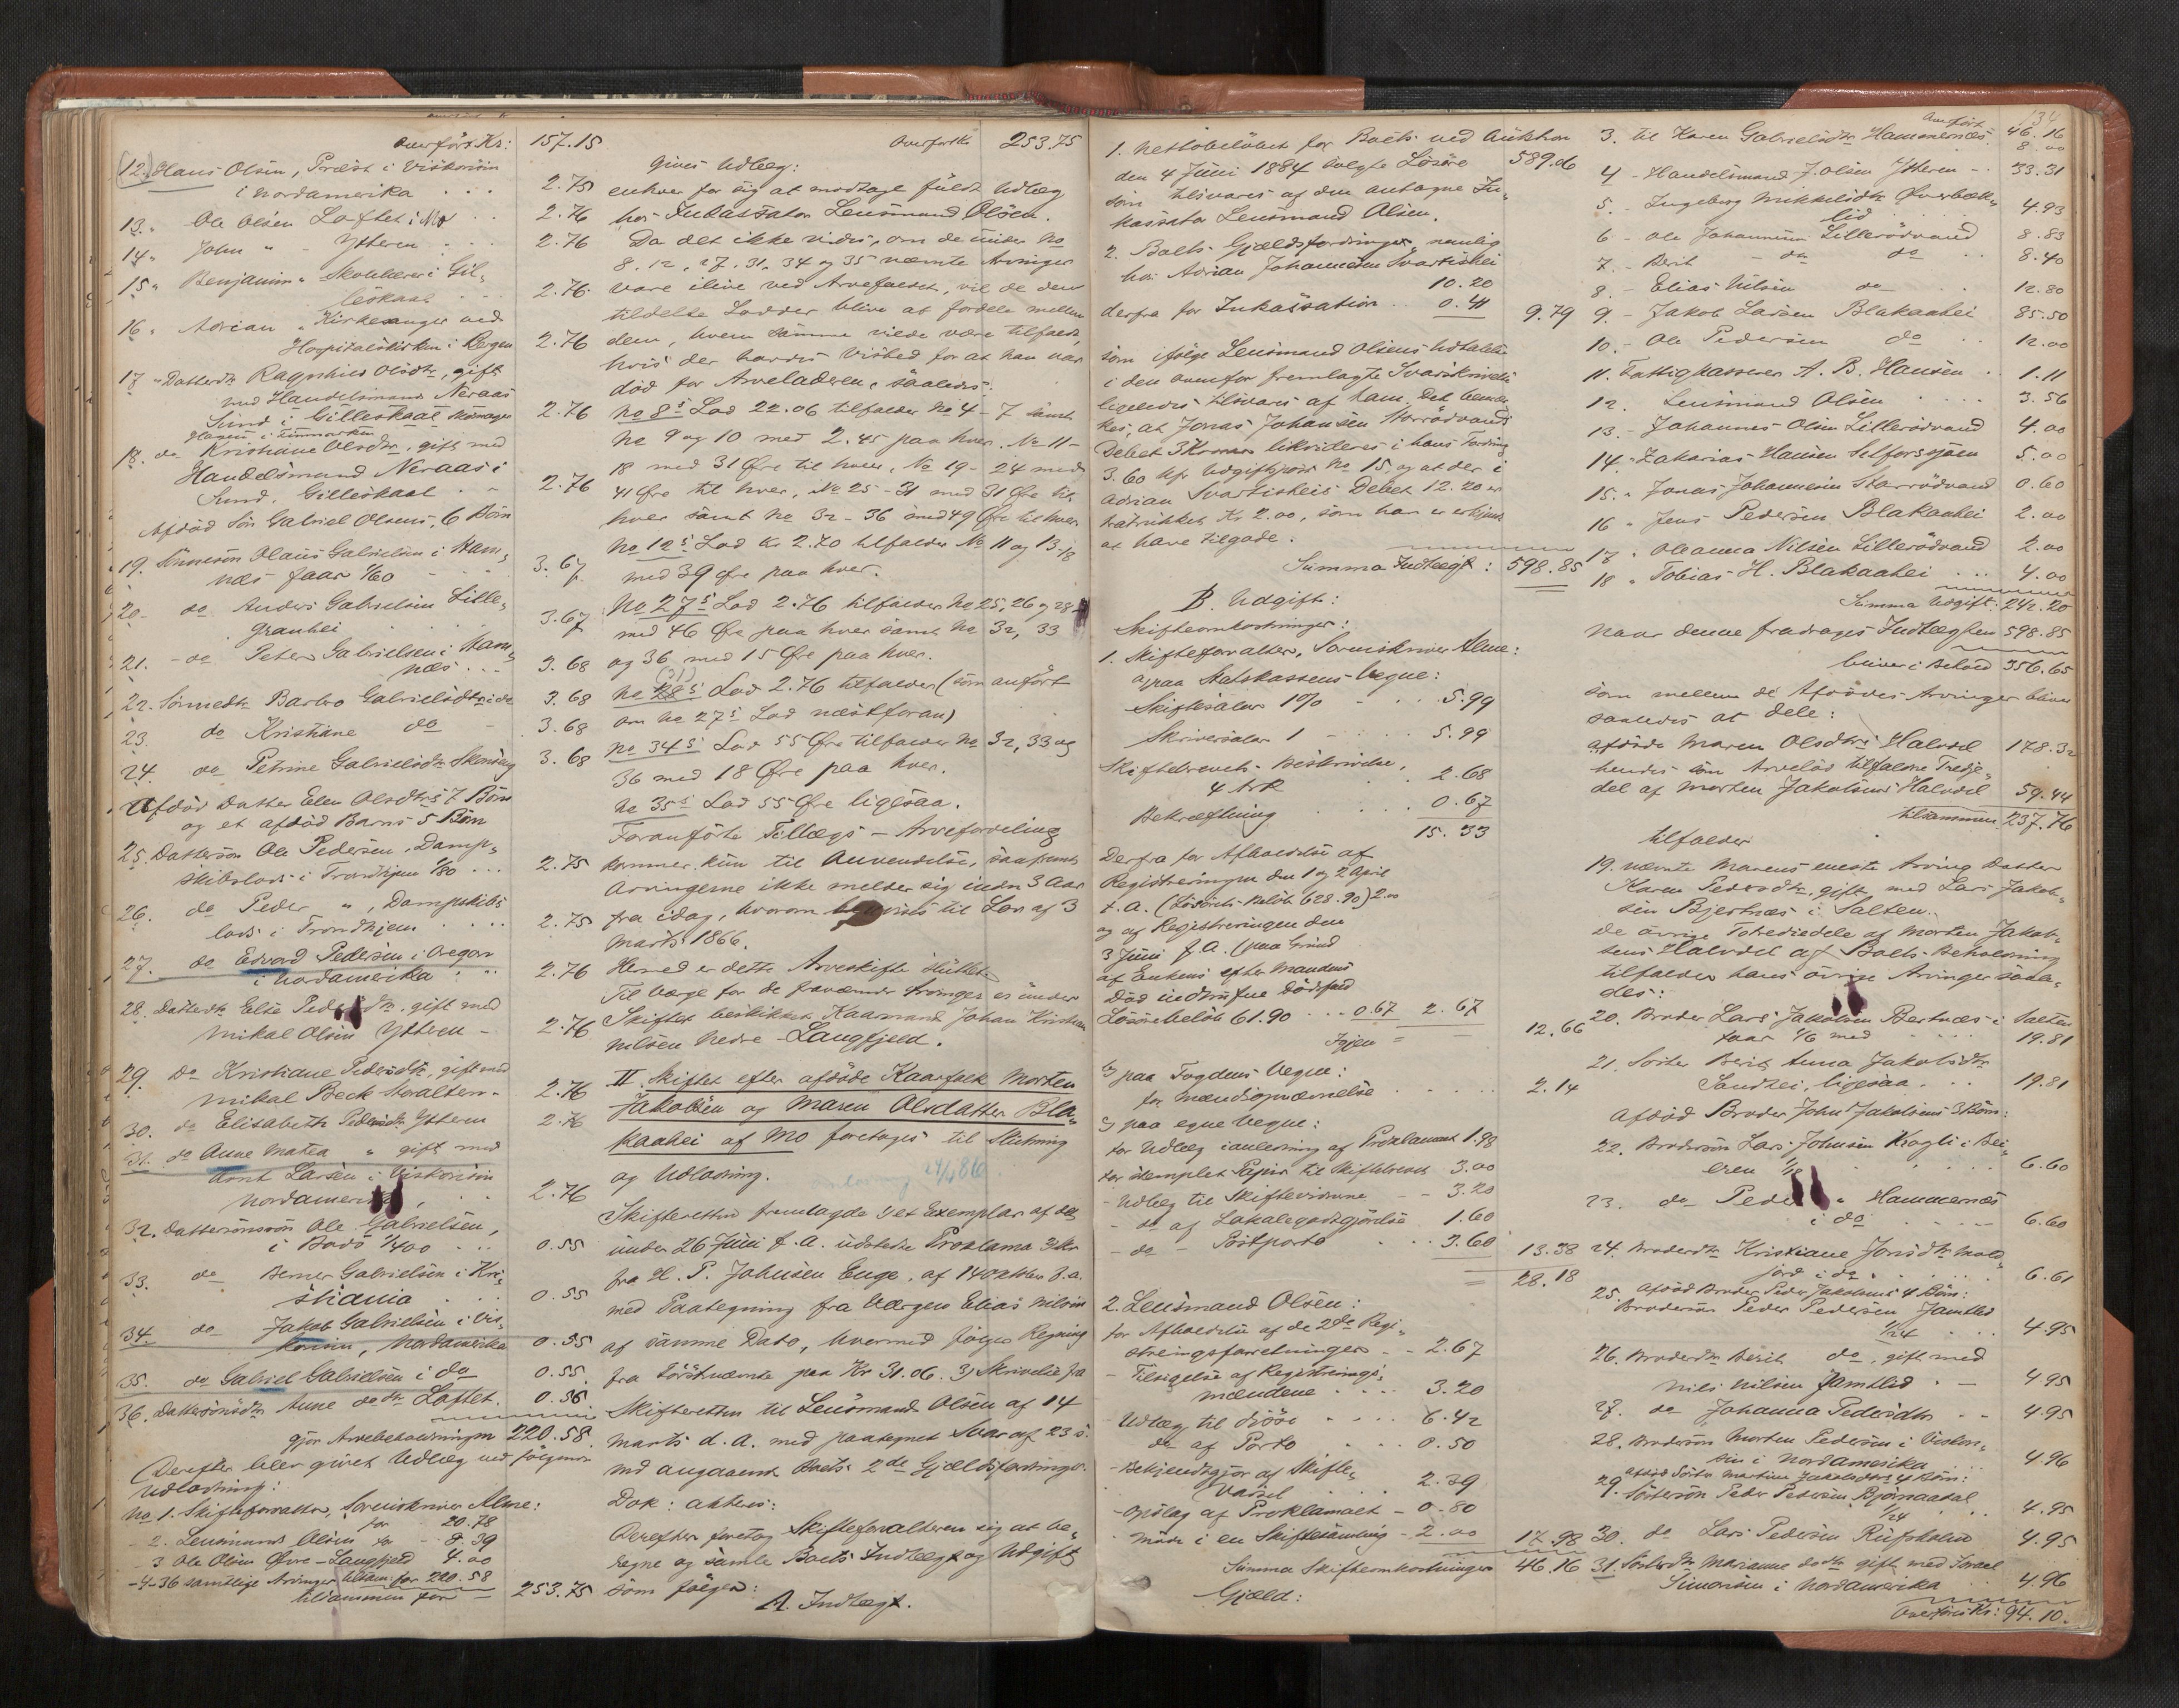 Overført Kr: 157.15
12. Hans Olsen, Præst i Viskonsin
i Nordamerika . . . 2.75
13. Ole Olsen Loftet i Mo . . 2.76
14. John " - Ytteren . . . 2.76
15. Benjamin " Skolelærer i Gil-
leskaal . . . 2.76
16. Adrian " Kirkesanger ved
Hospitalskirken i Bergen 2.76
17. Datterdtr Ragnhild Olsdtr, gift
med Handelsmand Neraas
Sund i Gilleskaal 2.76
18. do Kristiane Olsdtr, gift med
Handelsmand Neraas i
Sund, Gilleskaal . . 2.76
Afdød Søn Gabriel Olsens, 6 Børn
19. Sønnesøn Olaus Gabrielsen i Ham-
næs faar 1/60 3.67
20. do Anders Gabrielsen Lille-
Grauhei . . . 3.67
21. do Peter Gabrielsen i Ham-
næs . . . 3.68
22. Sønnedtr Barbro Gabrielsdtr i do 3.68
23. do Kristiane do 3.68
24. do Petrine Gabrielsdtr 3.68
Afdød Datter Elen Olsdtrs 7 Børn
og et afdød Barns 5 Børn
25. Dattersøn Ole Pedersen, Damp-
skibslods i Trondhjem 1/80 . . . 2.75
26. do Peder ", Dampskibs
lods i Trondhjem . . . . 2.75
27. do Edvard Pedersen i Oregon
i Nordamerika . . . 2.76
28. Datterdtr Else Pedersdtr, gift med
Mikal Olsen Ytteren - 2.76
29. do Kristiane Pedersdtr, gift med
Mikal Beck 2.76
30. do Elisabeth Pedersdtr Ytteren 2.76
31. do Anne Matea " gift med
Arnt Larsen i Viskonsin
Nordamerika, . . 2.76
32. Dattersønssøn Ole Gabrielsen,
i Bodø 1/400 . . . 0.55
33. do Berner Gabrielsen i Kri-
stiania . . . 0.55
34. do Jakob Gabrielsen i Vis-
konsin, Nordamerika 0.55
35. do Gabriel Gabrielsen i do 0.55.
36. Dattersønsdtr Anne do dtr Loftet. 0.56.
gjør Arvebeholdningen 220.58.
Derefter blev givet Udlæg ved følgende
Udlodning:
No 1. Skifteforvalter, Sorenskriver Alme:
for 20.78
- 2. Lensmand Olsen for - 8.39
- 3 Ole Olsen Øvre-Langfjeld 4.00
- 4-36 samtlige Arvinger tilsam: for 220.58
tilsammen for - 253.75
Overført Kr 253.75
gives Udlæg:
enhver for sig at modtage fuldt Udlæg
hos Inkassator Lensmand Olsen.
Da det ikke vides, om de under No
8. 12, 27, 31, 34 og 35 nævnte Arvinger
vare ilive ved Arvefaldet, vil de dem
tildelte Lodder blive at fordele mellem
dem, hvem samme vilde være tilfaldt,
hvis der havdes Vished for at han var
død før Arveladeren, saaledes:
No 8s Lod 22.06 tilfalder No 4 - 7 samt
No 9 og 10 med 2.45 paa hver. No 11 -
18 med 31 Øre til hver, No 19 - 24 med
41 Øre til hver, No 25 - 31 med 31 Øre til
hver samt No 32 - 36 med 49 Øre til hver.
No 12s Lod Kr 2.70 tilfalder No 11 og 13-18
med 39 Øre paa hver.
No 27s Lod 2.76 tilfalder No 25, 26 og 28
med 46 Øre paa hver samt No 32, 33
og 36 med 15 Øre paa hver.
(31)
No 28s Lod 2.76 tilfalder (som anført
om No 27s Lod næstforan)
No 34s Lod 55 Øre tilfalder No 32, 33 og
36 med 18 Øre paa hver.
No 35s Lod 55 Øre ligesaa.
Foranførte Tillægs-Arvefordeling
kommer kun til Anvendelse, saafremt
Arvingerne ikke melder sig inden 3 Aar
fra idag, hvorom henvises til Lov af 3
Marts 1866.
Hermed er dette Arveskifte sluttet.
Til Værge for de fraværende Arvinger er under
Skiftet beskikket Kaarmand Johan Kristian
Nilsen Nedre-Langfjeld.
II Skiftet efter afdøde Kaarfolk Morten
Jakobsen og Maren Olsdatter Bla-
kaahei af Mo foretages til Slutning
og Udlodning.
Skifteretten fremlagde 1) et Exemplar af det
under 26 Juni f.A. udstedte Proklama 2)
fra H. P. Johnsen Enge, af 14 Oktbr f.a.
med Paategning fra Værgen Elias Nilsen
af samme Dato, hvormed følger Regning
fra førstnævnte paa Kr 31.06. 3) Skrivelse fra
Skifteretten til Lensmand Olsen af 14
Marts d.A. med paategnet Svar af 23 s.
Md angaaende Boets 2de Gjældsfordringer.
Dok: akteres:
Derefter foretog Skifteforvalteren sig at be-
regne og samle Boets Indtægt og Udgift
som følger:
A. Indtægt.
1. Nettobeløbet for Boets ved Auktion
den 4 Juni 1884 solgte Løsøre 589.06
som tilsvares af den antagne In-
kassator Lensmand Olsen.
2. Boets Gjældsfordringer, nemlig
hos Adrian Johannesen Svartishei
10.20
derfra for Inkassation . 0.41 9.79
som ifølge Lensmand Olsens Udtalelse
i den ovenfor fremlagte Svarskrivelse
ligeledes tilsvares af ham. Det bemær-
kes, at Jonas Johansen Storrødvands
Debet 3 Kroner likvideres i hans Fordring
3.60 kfr Udgiftspost No 15, og at der i
Adrian Svartisheis Debet 12.20 er
fratrukket Kr 2.00, som han er erkjendt
at have tilgode.
Summa Indtægt: 598.85
B. Udgift:
Skifteomkostninger:
1. Skifteforvalter, Sorenskriver Alme:
a) paa Statskassens Vegne:
Skiftesalær 1% - . . 5.99
Skriversalær 1 - . . . 5.99
Skiftebrevets Beskrivelse,
4 Ark . . 2.68
Bekræftning . . . 0.67
15.33
Derfra for Afholdelse af
Registreringen den 1 og 2 April
f.A. (Løsørets Beløb 628.90) 2.00
og af Registreringen den
3 Juni f.A. (paa Grund
af Enkens efter Mandens
Død indtrufne Dødsfald
Løsørebeløb 61.90 . . 0.67 2.67
Igjen = 12.66
b) paa Fogdens Vegne:
for Mændsopnævnelse . . . . 2.14
c) paa egne Vegne:
for Udlæg i anledning af Proklamaet 1.98
for stemplet Papir til Skiftebrevet 3.00
- Udlæg til Skiftevidnerne - - 3.20
- do af Lokalegodtgjørelse 1.60
- do - Postporto . . . 3.60 13.38
= 28.18
2. Lensmand Olsen:
for Afholdelse af de 2de Regi-
streringsforretninger - - 2.67
- Tilsigelse af Registrerings-
mændene . . . . 3.20
- Udlæg til disse . . . . 6.42
do af Porto . . . . 0.50
- Bekjendtgjør af Skifte-
varsel . . . 2.39
- Opslag af Proklamaet - 0.80
- Møde i en Skiftesamling - 2.00 17.98
Summa Skifteomkostninger 46.16
Gjæld:
134
Overført 46.16
3. til Karen Gabrielsdtr Hammernæs 8.00
4 - Handelsmand J. Olsen Ytteren - . 33.31
5. - Ingeborg Mikkelsdtr Øverbæk-
lid 4.93
6 - Ole Johannesen Lillerødvand 8.83
7. - Berit - do do . . 8.40
8. - Elias Nilsen do . 12.80
9. - Jakob Larsen Blakaahei 85.50
10. - Ole Pedersen do . . 12.00
11. Fattigkasserer A. B. Hansen . . 1.11
12. Lensmand Olsen . . . . 3.56
13. - Johannes Olsen Lillerødvand 4.00
14. " Zakarias Hansen Selforssjøen 5.00
15. " Jonas Johannesen Storrødvand 0.60
16 " Jens Pedersen Blakaahei 2.00
17 " Oleanna Nilsen Lillerødvand 2.00
18 " Tobias H. Blakaahei . . . 4.00
Summa Udgift: 242.20
Naar denne fradrages Indtægten 598.85
bliver i Behold 356.65
som mellem de Afdødes Arvinger bliver
saaledes at dele:
afdøde Maren Olsdtrs Halvdel 178.32
hendes som Arvelod tilfaldne Tredje-
del af Morten Jakobsens Halvdel 59.44
tilsammen 237.76
tilfalder
19. nævnte Marens eneste Arving Datter
Karen Pedersdtr, gift med Lars Jakob-
sen Bjertnæs i Salten.
De øvrige Totrediedele af Morten Jakob-
sens Halvdel af Boets Beholdning
tilfalder hans øvrige Arvinger saale-
des:
20. Broder Lars Jakobsen Bertnæs i Salten
faar 1/6 med . . . . 19.81
21. Søster Berit Anna Jakobsdtr
Sandhei, ligesaa . . . 19.81
Afdød Broder John Jakobsens 3 Børn:
22. Brodersøn Lars Johnsen Kragli i Bei-
eren 1/18 . . . . . 6.60
23. do Peder " Hammernæs
i do . . . - - 6.60
24. Broderdtr Kristiane Jonsdtr Mold
jord i do . . . . . 6.61
25. Afdød Broder Peder Jakobsens 4 Børn:
Brodersøn Peder Pedersen Jamtlid
1/24 . . . 4.95
26. Broderdtr Berit do, gift med
Nils Nilsen Jamtlid . - 4.95
27. do Johanna Pedersdtr - - 4.95
28. Brodersøn Morten Pedersen i Viskon-
sin i Nordamerika . . . 4.96
29. Afdød Søster Martine Jakobsdtrs 4 Børn:
Søstersøn Peder Petersen Bjørnaadal
1/24 . . . 4.95
30. do Lars Pedersen 4.95
31. Søsterdtr Marianne do dtr gift med Israel
Simonsen i Nordamerika . . 4.96
Overføres Kr: 94.10.